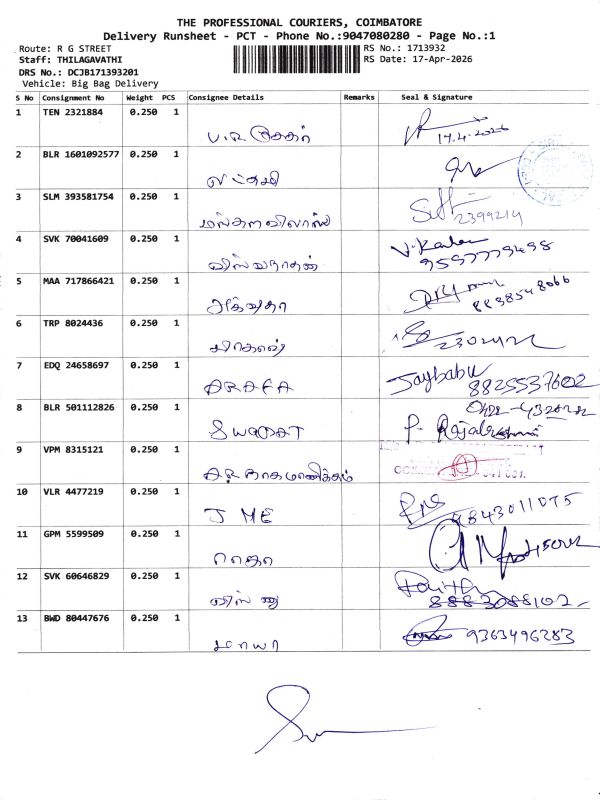 THE PROFESSIONAL COURIERS, COIMBATORE
Delivery Runsheet - PCT - Phone No.:9047080280 - Page No.:1
Route: R G STREET
RS No.: 1713932
Staff: THILAGAVATHI
RS Date: 17-Apr-2026
DRS No.: DCJB171393201
Vehicle: Big Bag Delivery
S No Consignment No Weight PCS Consignee Details Remarks Seal & Signature
1 TEN 2321884 0.250 1
17.4.2026
2 BLR 1601092577 0.250 1
லட்சுமி
3 SLM 393581754 0.250 1
மங்களவிலாஸ் 2399214
4 SVK 70041609 0.250 1
விஸ்வநாதன்
5 MAA 717866421 0.250 1
8838548066
6 TRP 8024436 0.250 1
7 EDQ 24658697 0.250 1 Jaybabu
ARAFA 8825537602
8 BLR 501112826 0.250 1
SWAGAT P. Rajalakshmi
9 VPM 8315121 0.250 1
A.R நாகமாணிக்கம்
10 VLR 4477219 0.250 1
J ME 9843011075
11 GPM 5599509 0.250 1
ராதா
12 SVK 60646829 0.250 1
விஸ்ணு 8883088102
13 BWD 80447676 0.250 1
மாயா 9363496283